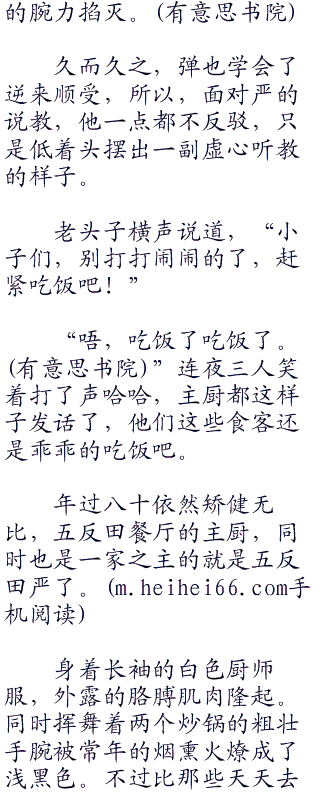 的腕力掐灭。(有意思书院)
久而久之，弹也学会了
逆来顺受，所以，面对严的
说教，他一点都不反驳，只
是低着头摆出一副虚心听教
的样子。
老头子横声说道，“小
子们，别打打闹闹的了，赶
紧吃饭吧！”
“唔，吃饭了吃饭了。
(有意思书院)”连夜三人笑
着打了声哈哈，主厨都这样
子发话了，他们这些食客还
是乖乖的吃饭吧。
年过八十依然矫健无
比，五反田餐厅的主厨，同
时也是一家之主的就是五反
田严了。(m.heihei66.com手
机阅读)
身着长袖的白色厨师
服，外露的胳膊肌肉隆起。
同时挥舞着两个炒锅的粗壮
手腕被常年的烟熏火燎成了
浅黑色。不过比那些天天去